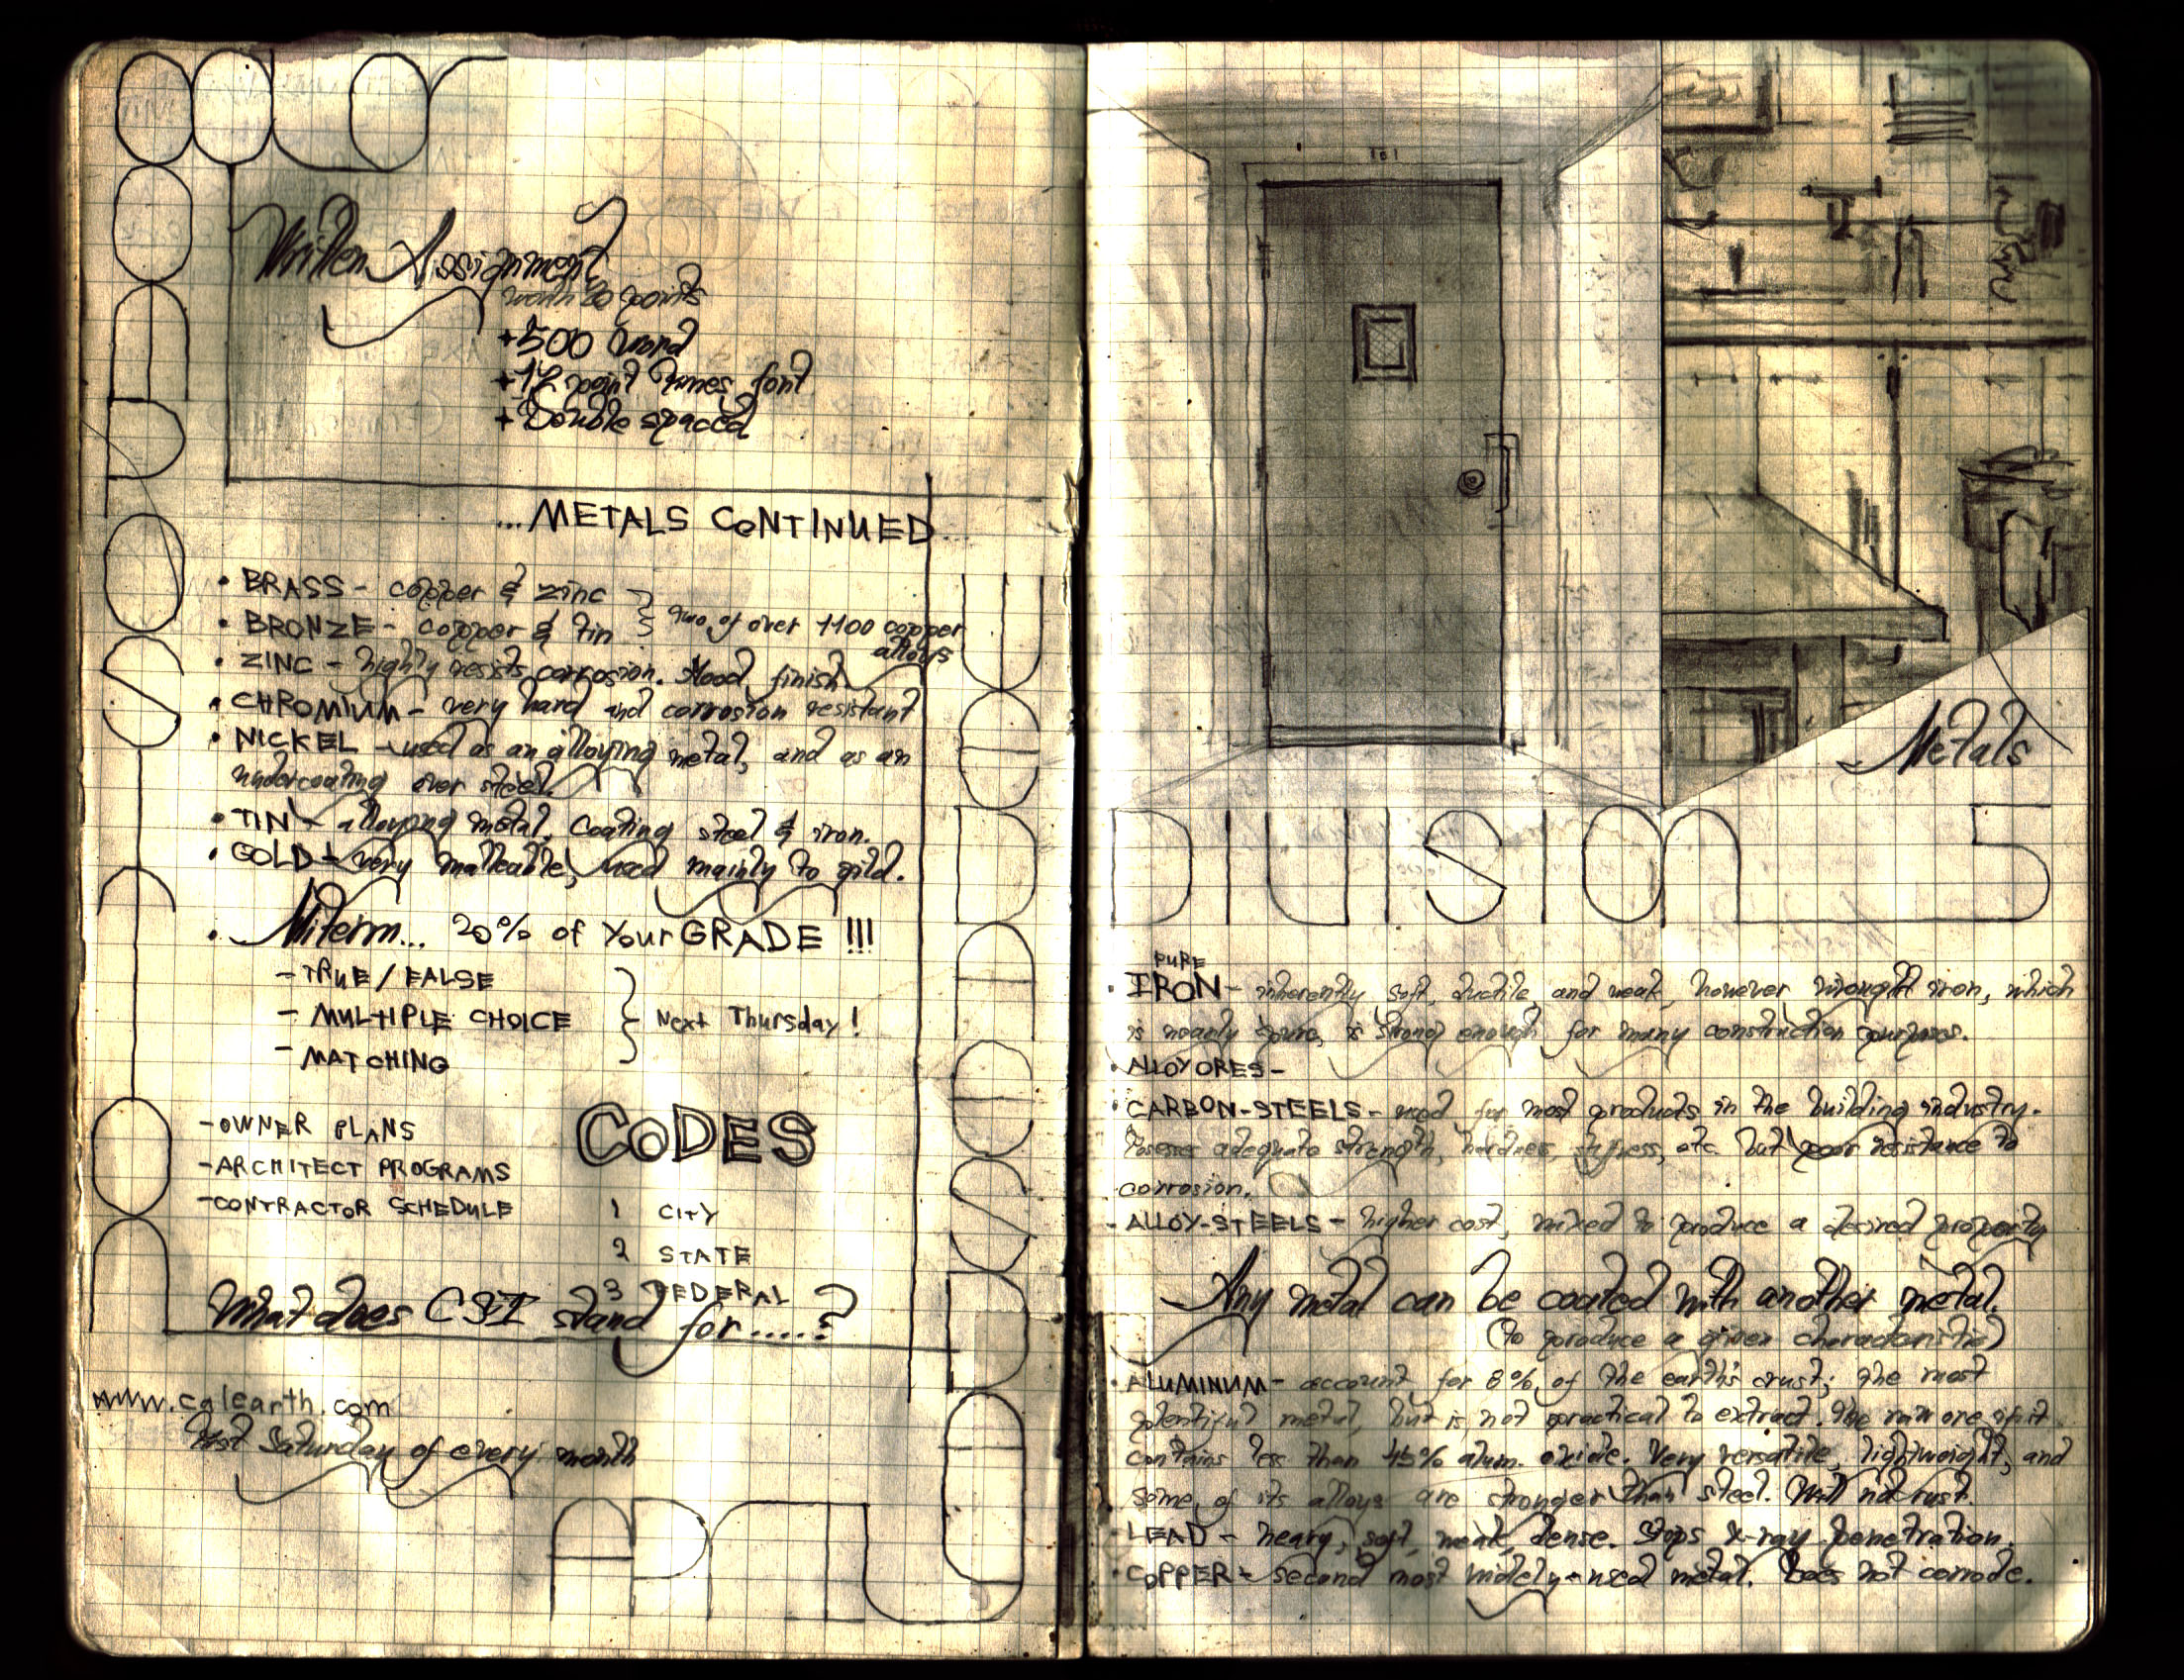 Written Assignment
worth 20 points
+500 word
+12 point Times font
+Double spaced
...METALS CONTINUED...
• BRASS - copper & zinc
• BRONZE - copper & tin } two of over 1100 copper alloys
• ZINC - highly resists corrosion. Hood finish
• CHROMIUM - very hard and corrosion resistant
• NICKEL - used as an alloying metal, and as an
undercoating over steel.
• TIN - alloying metal. Coating steel & iron.
• GOLD - very malleable, used mainly to gild.
• Miterm... 20% of Your GRADE !!!
- TRUE / FALSE
- MULTIPLE CHOICE } Next Thursday!
- MATCHING
CODES
- OWNER PLANS
- ARCHITECT PROGRAMS
- CONTRACTOR SCHEDULE
1 CITY
2 STATE
3 FEDERAL
What does CSI stand for.....?
www.calearth.com
Saturday of every month
101
Metals
DIVISION 5
• PURE IRON - inherently soft, ductile, and weak, however wrought iron, which
is nearly pure, is strong enough for many construction purposes.
• ALLOY ORES -
• CARBON-STEELS - used for most products in the building industry.
Posesses adequate strength, hardness, stiffness, etc. but poor resistance to
corrosion.
- ALLOY-STEELS - higher cost, mixed to produce a desired property
- Any metal can be coated with another metal.
(to produce a given characteristic)
• ALUMINUM - account for 8% of the earth's crust; the most
plentiful metal, but is not practical to extract. The raw ore of it
contains less than 45% alum. oxide. Very versatile, lightweight, and
some of its alloys are stronger than steel. Will not rust.
- LEAD - heavy, soft, weak, dense. Stops x-ray penetration.
• COPPER - second most widely-used metal. Does not corrode.